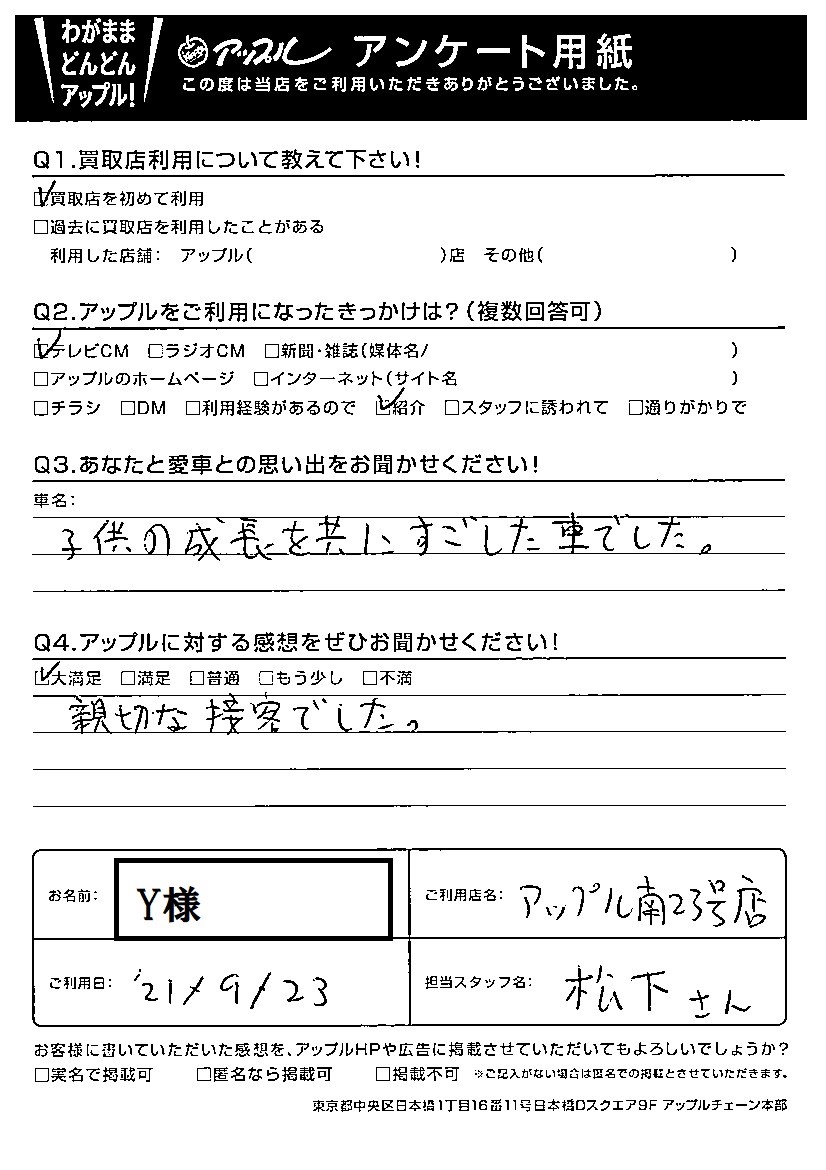 わがまま
どんどん
アップル!
アップル アンケート用紙
この度は当店をご利用いただきありがとうございました。
Q1.買取店利用について教えて下さい!
☑買取店を初めて利用
□過去に買取店を利用したことがある
利用した店舗: アップル( )店 その他( )
Q2.アップルをご利用になったきっかけは?(複数回答可)
☑テレビCM □ラジオCM □新聞・雑誌(媒体名/ )
□アップルのホームページ □インターネット(サイト名 )
□チラシ □DM □利用経験があるので ☑紹介 □スタッフに誘われて □通りがかりで
Q3.あなたと愛車との思い出をお聞かせください!
車名:
子供の成長を共にすごした車でした。
Q4.アップルに対する感想をぜひお聞かせください!
☑大満足 □満足 □普通 □もう少し □不満
親切な接客でした。
お名前: Y様
ご利用店名: アップル南23号店
ご利用日: '21/9/23
担当スタッフ名: 松下さん
お客様に書いていただいた感想を、アップルHPや広告に掲載させていただいてもよろしいでしょうか?
□実名で掲載可 □匿名なら掲載可 □掲載不可 ※ご記入がない場合は匿名での掲載とさせていただきます。
東京都中央区日本橋1丁目16番11号日本橋Dスクエア9F アップルチェーン本部